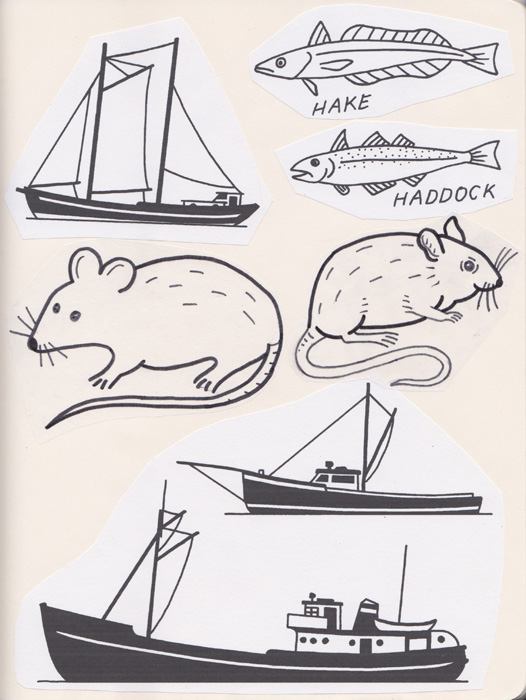 HAKE
HADDOCK